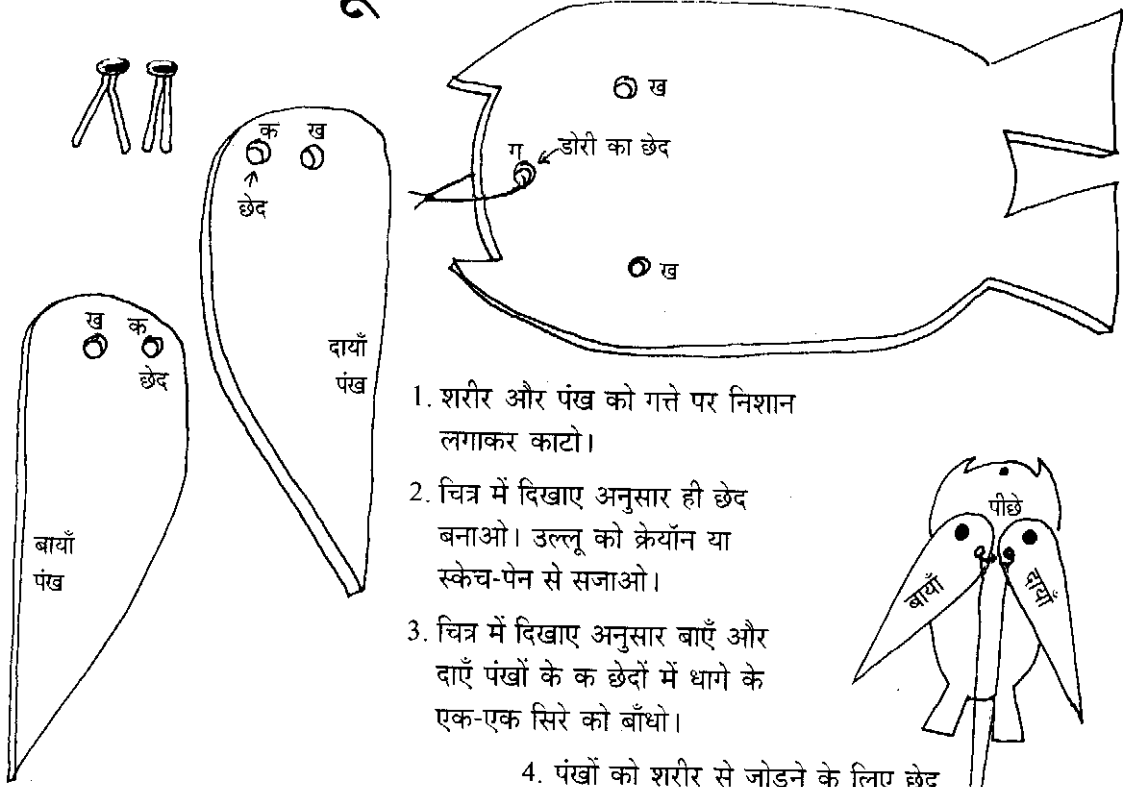 ख
ग
डोरी का छेद
ख
क ख
छेद
दायाँ
पंख
ख क
छेद
बायाँ
पंख
1. शरीर और पंख को गत्ते पर निशान
लगाकर काटो।
2. चित्र में दिखाए अनुसार ही छेद
बनाओ। उल्लू को क्रेयॉन या
स्केच-पेन से सजाओ।
3. चित्र में दिखाए अनुसार बाएँ और
दाएँ पंखों के क छेदों में धागे के
एक-एक सिरे को बाँधो।
4. पंखों को शरीर से जोड़ने के लिए छेद
पीछे
बायाँ
दायाँ